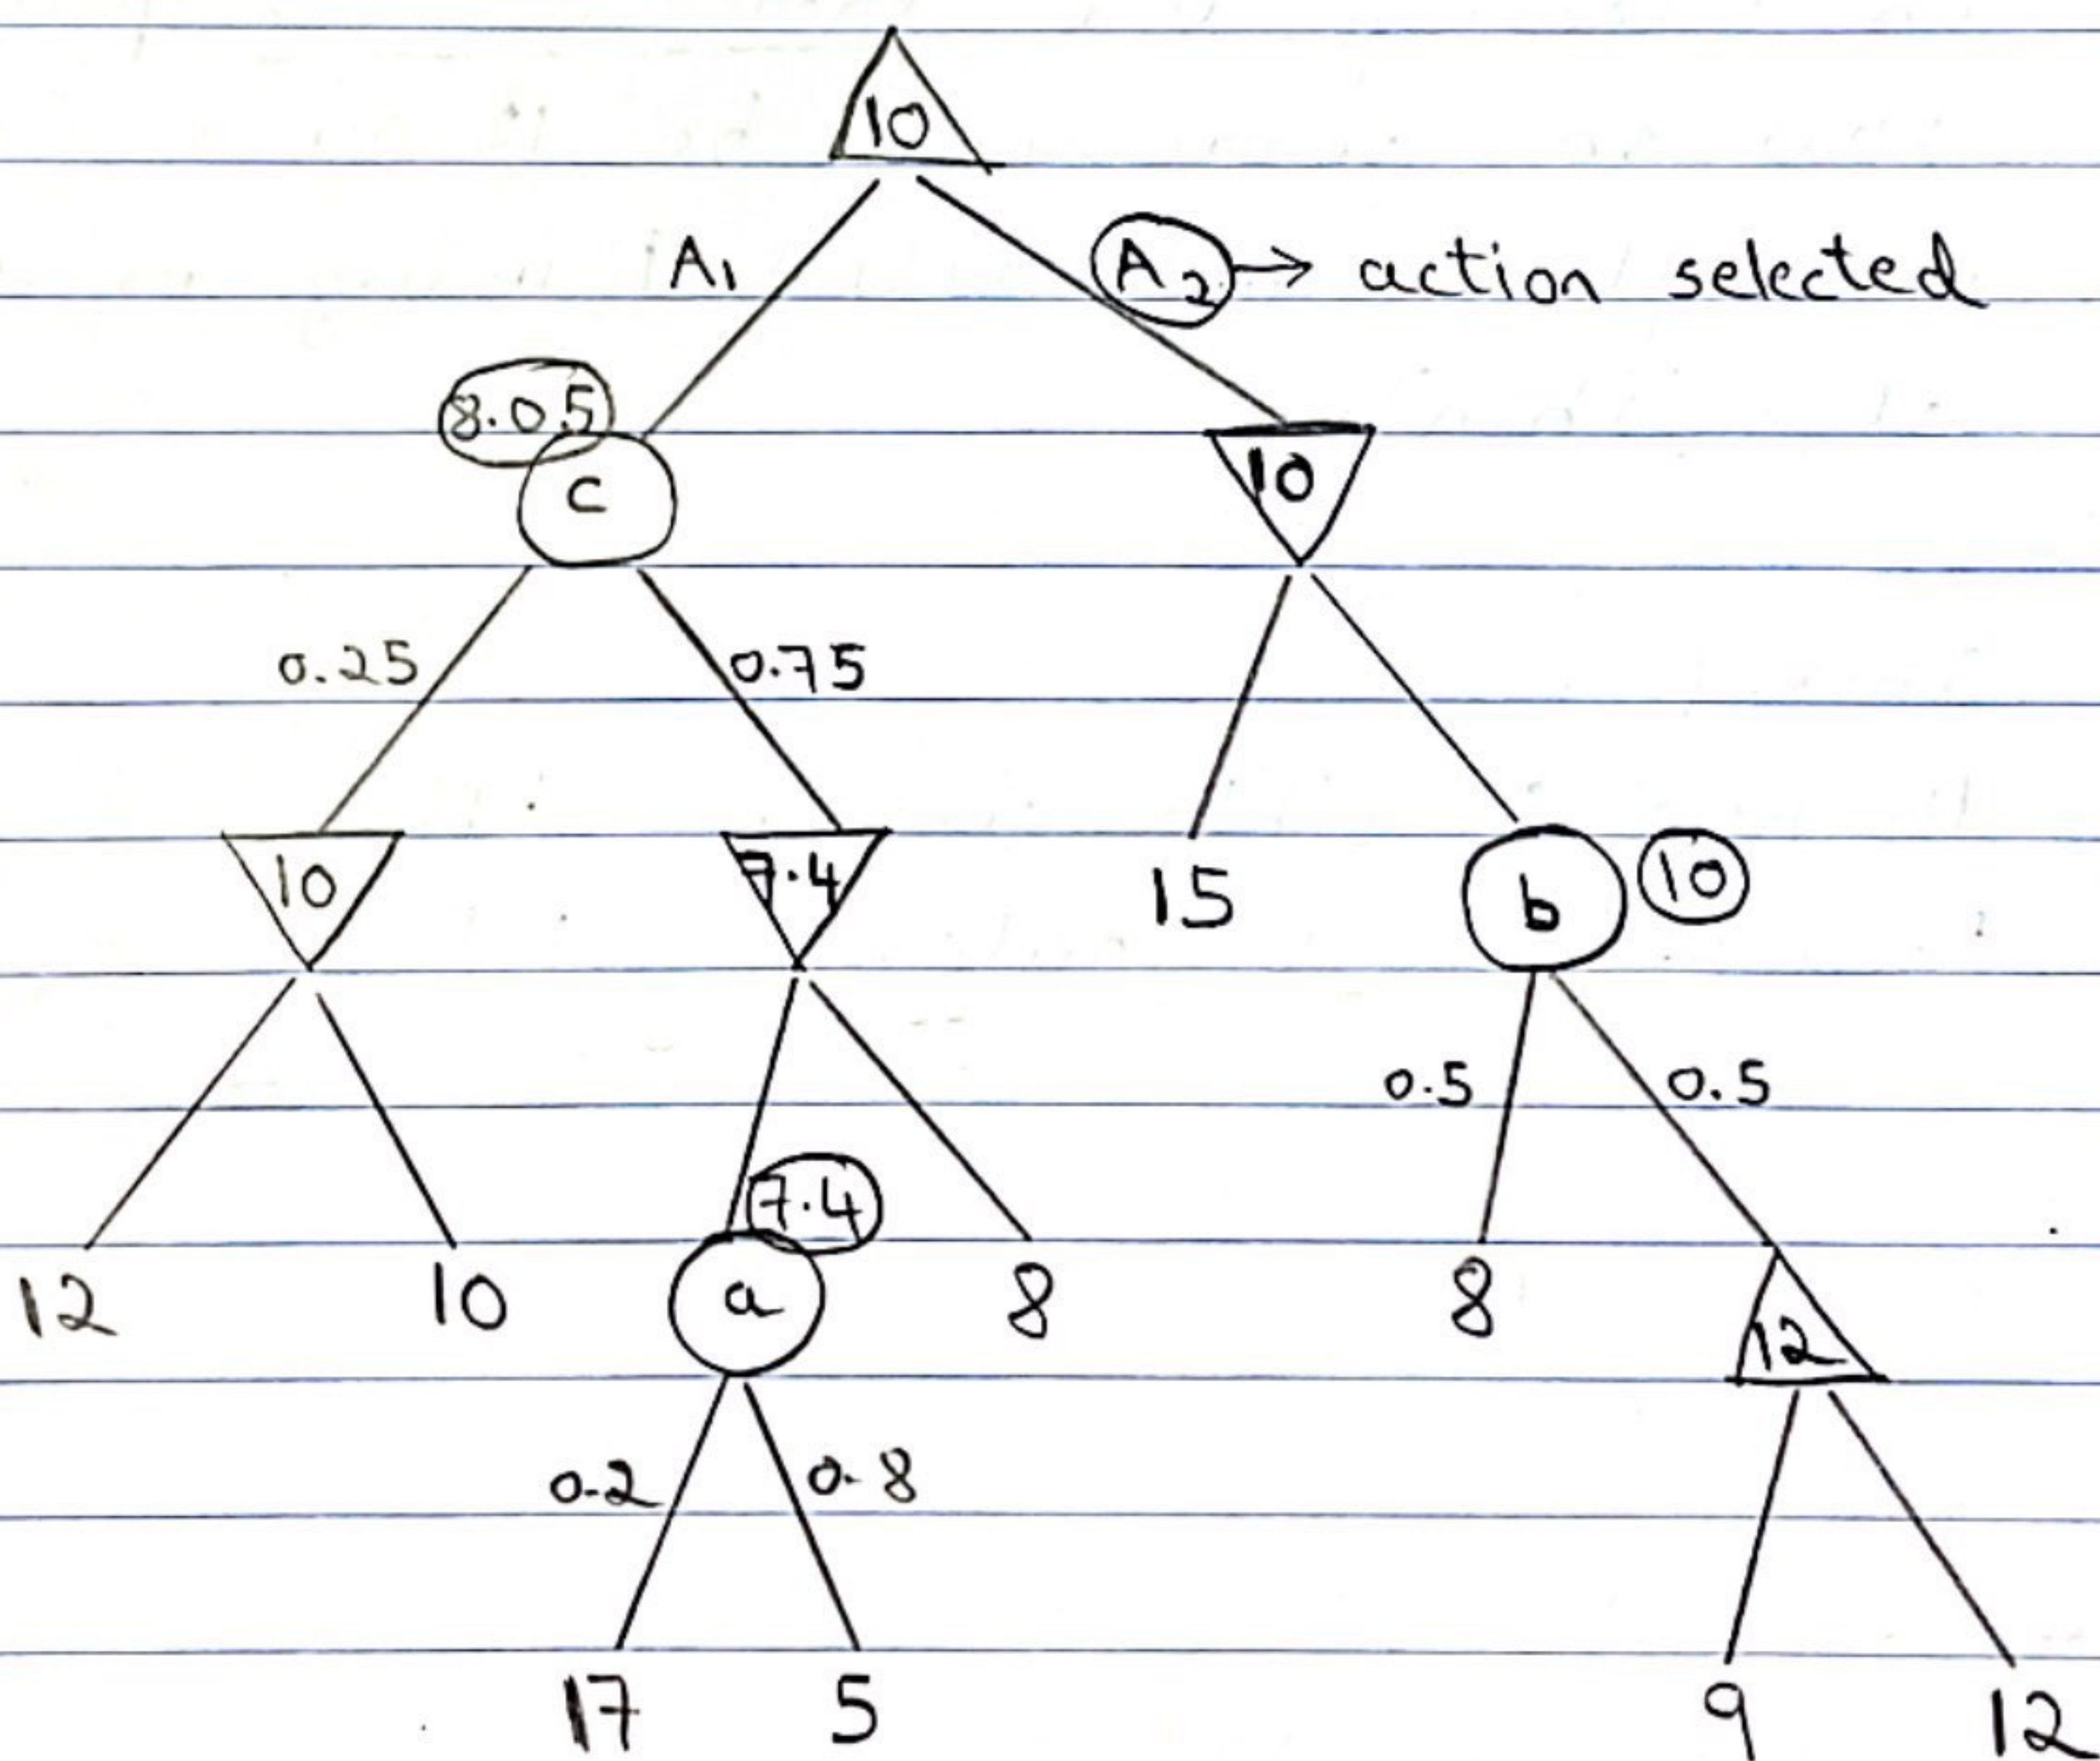 10
A1 A2 → action selected
8.05
c 10
0.25 0.75
10 7.4 15 b 10
0.5 0.5
7.4
12 10 a 8 8 12
0.2 0.8
17 5 9 12